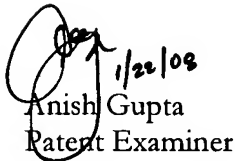 1/22/08
Anish Gupta
Patent Examiner